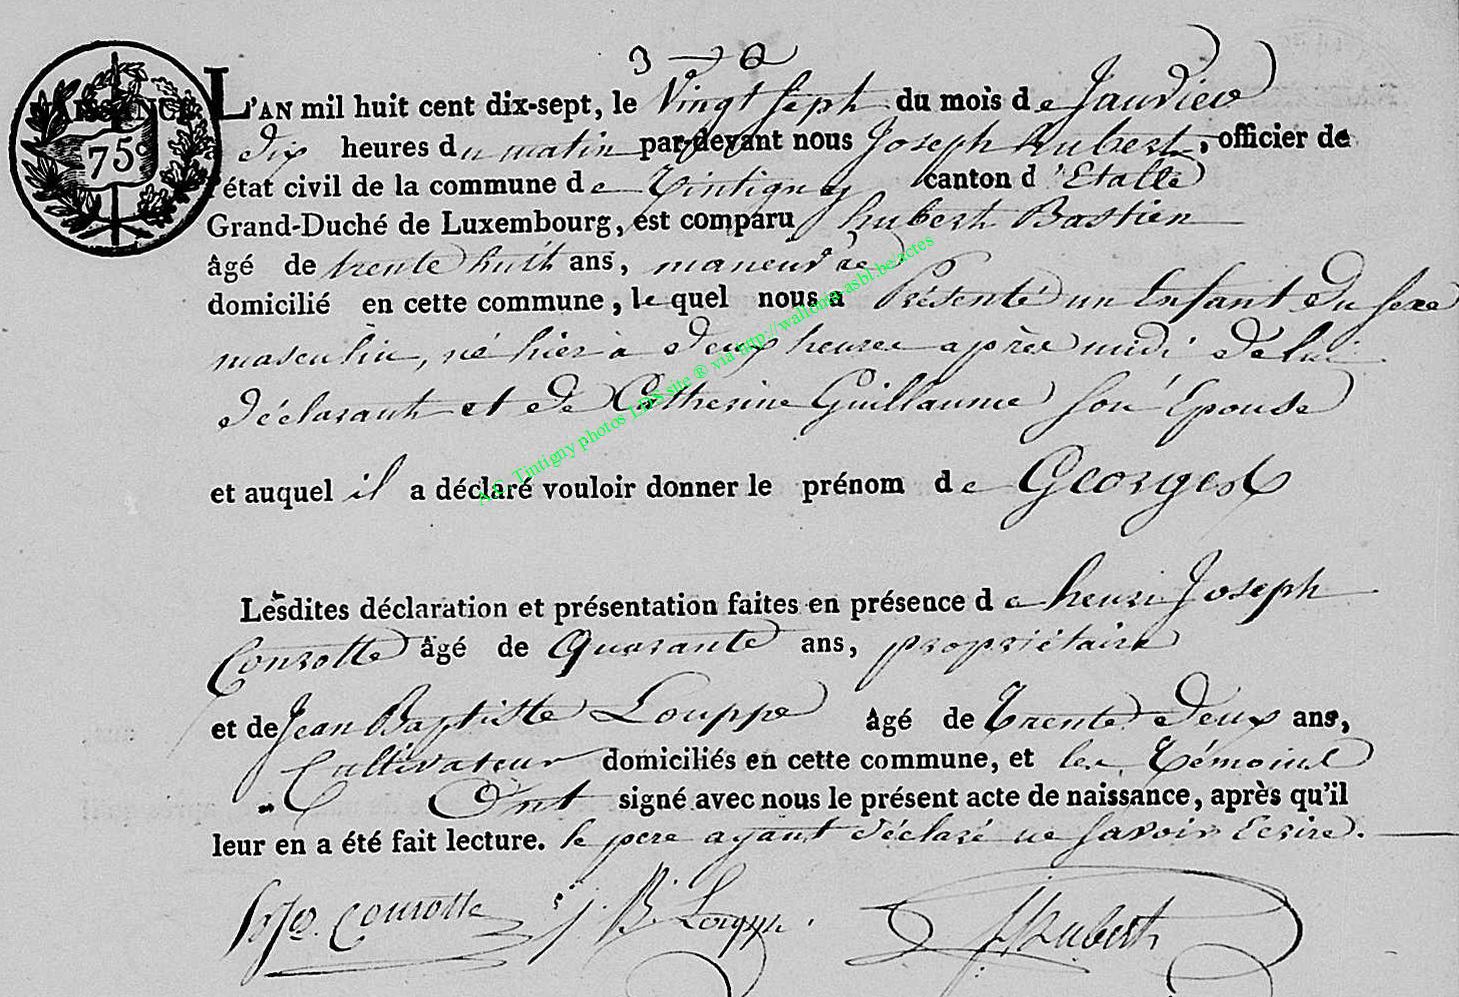 75c
L'AN mil huit cent dix-sept, le Vingt Sept du mois de Janvier
dix heures du matin par-devant nous Joseph hubert, officier de
l'état civil de la commune de Tintigny canton d'Etalle
Grand-Duché de Luxembourg, est comparu hubert Bastien
âgé de trente huit ans, maneuvre
domicilié en cette commune, lequel nous a Présenté un Enfant du sexe
masculin, né hier à deux heures après midi de lui
déclarant et de Catherine Guillaume son Epouse
et auquel il a déclaré vouloir donner le prénom de Georges
Lesdites déclaration et présentation faites en présence de henri Joseph
Conrotte âgé de Quarante ans, propriétaire
et de Jean Baptiste Louppe âgé de Trente deux ans,
Cultivateur domiciliés en cette commune, et les Témoins
Ont signé avec nous le présent acte de naissance, après qu'il
leur en a été fait lecture. le pere ayant déclaré ne savoir Ecrire.
Conrotte J. B. Louppe J Hubert
A.E. Tintigny photos LDS site ® via http://wallonia-asbl.be/actes